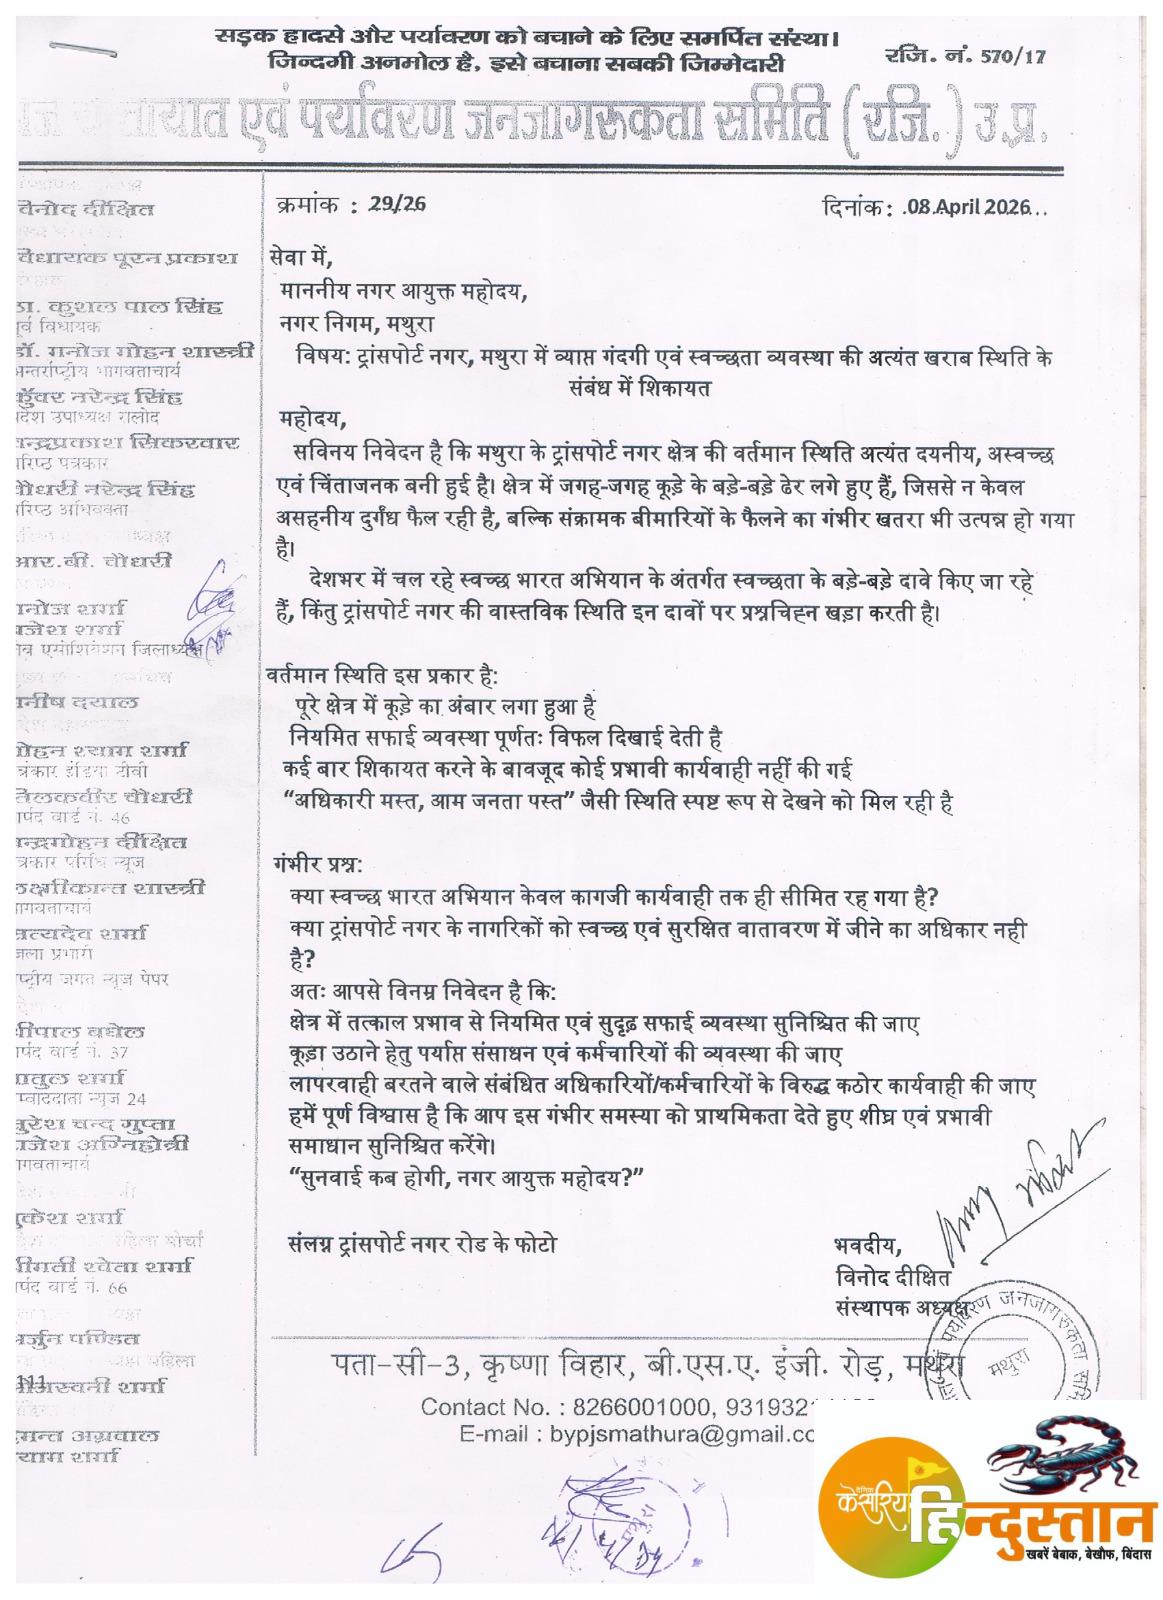 सड़क हादसे और पर्यावरण को बचाने के लिए समर्पित संस्था।
जिन्दगी अनमोल है, इसे बचाना सबकी जिम्मेदारी
रजि. नं. 570/17
एवं पर्यावरण जनजागरूकता समिति (रजि.) उ.प्र.
क्रमांक : 29/26
दिनांक: .08 April 2026...
सेवा में,
माननीय नगर आयुक्त महोदय,
नगर निगम, मथुरा
विषय: ट्रांसपोर्ट नगर, मथुरा में व्याप्त गंदगी एवं स्वच्छता व्यवस्था की अत्यंत खराब स्थिति के
संबंध में शिकायत
महोदय,
सविनय निवेदन है कि मथुरा के ट्रांसपोर्ट नगर क्षेत्र की वर्तमान स्थिति अत्यंत दयनीय, अस्वच्छ
एवं चिंताजनक बनी हुई है। क्षेत्र में जगह-जगह कूड़े के बड़े-बड़े ढेर लगे हुए हैं, जिससे न केवल
असहनीय दुर्गंध फैल रही है, बल्कि संक्रामक बीमारियों के फैलने का गंभीर खतरा भी उत्पन्न हो गया
है।
देशभर में चल रहे स्वच्छ भारत अभियान के अंतर्गत स्वच्छता के बड़े-बड़े दावे किए जा रहे
हैं, किंतु ट्रांसपोर्ट नगर की वास्तविक स्थिति इन दावों पर प्रश्नचिह्न खड़ा करती है।
वर्तमान स्थिति इस प्रकार है:
पूरे क्षेत्र में कूड़े का अंबार लगा हुआ है
नियमित सफाई व्यवस्था पूर्णतः विफल दिखाई देती है
कई बार शिकायत करने के बावजूद कोई प्रभावी कार्यवाही नहीं की गई
“अधिकारी मस्त, आम जनता पस्त” जैसी स्थिति स्पष्ट रूप से देखने को मिल रही है
गंभीर प्रश्न:
क्या स्वच्छ भारत अभियान केवल कागजी कार्यवाही तक ही सीमित रह गया है?
क्या ट्रांसपोर्ट नगर के नागरिकों को स्वच्छ एवं सुरक्षित वातावरण में जीने का अधिकार नही
है?
अतः आपसे विनम्र निवेदन है कि:
क्षेत्र में तत्काल प्रभाव से नियमित एवं सुदृढ़ सफाई व्यवस्था सुनिश्चित की जाए
कूड़ा उठाने हेतु पर्याप्त संसाधन एवं कर्मचारियों की व्यवस्था की जाए
लापरवाही बरतने वाले संबंधित अधिकारियों/कर्मचारियों के विरुद्ध कठोर कार्यवाही की जाए
हमें पूर्ण विश्वास है कि आप इस गंभीर समस्या को प्राथमिकता देते हुए शीघ्र एवं प्रभावी
समाधान सुनिश्चित करेंगे।
“सुनवाई कब होगी, नगर आयुक्त महोदय?”
संलग्न ट्रांसपोर्ट नगर रोड के फोटो
भवदीय,
विनोद दीक्षित
संस्थापक अध्यक्ष
पर्यावरण जनजागरूकता
मथुरा
पता–सी–3, कृष्णा विहार, बी.एस.ए. इंजी. रोड़, मथुरा
Contact No. : 8266001000, 931932
E-mail : bypjsmathura@gmail.co
विनोद दीक्षित
विधायक पूरन प्रकाश
कुशल पाल सिंह
विधायक
डॉ. मनोज मोहन शास्त्री
अन्तर्राष्ट्रीय भागवताचार्य
नरेन्द्र सिंह
उपाध्यक्ष रालोद
चन्द्रप्रकाश सिकरवार
पत्रकार
चौधरी नरेन्द्र सिंह
अधिवक्ता
आर.बी. चौधरी
मनोज शर्मा
राजेश शर्मा
एसोशियेशन जिलाध्यक्ष
मनीष दयाल
मोहन श्याम शर्मा
इंडिया टीवी
चौधरी
वार्ड नं. 46
दीक्षित
न्यूज
लक्ष्मीकान्त शास्त्री
भागवताचार्य
सत्यदेव शर्मा
जगत न्यूज पेपर
बघेल
वार्ड नं. 37
शर्मा
न्यूज 24
सुरेश चन्द गुप्ता
राजेश अग्निहोत्री
भागवताचार्य
मुकेश शर्मा
महिला मोर्चा
श्रीमती श्वेता शर्मा
वार्ड नं. 66
अर्जुन पण्डित
महिला
शर्मा
अग्रवाल
श्याम शर्मा
मथुरा
दैनिक
केसरिया
हिन्दुस्तान
खबरें बेबाक, बेखौफ, बिंदास